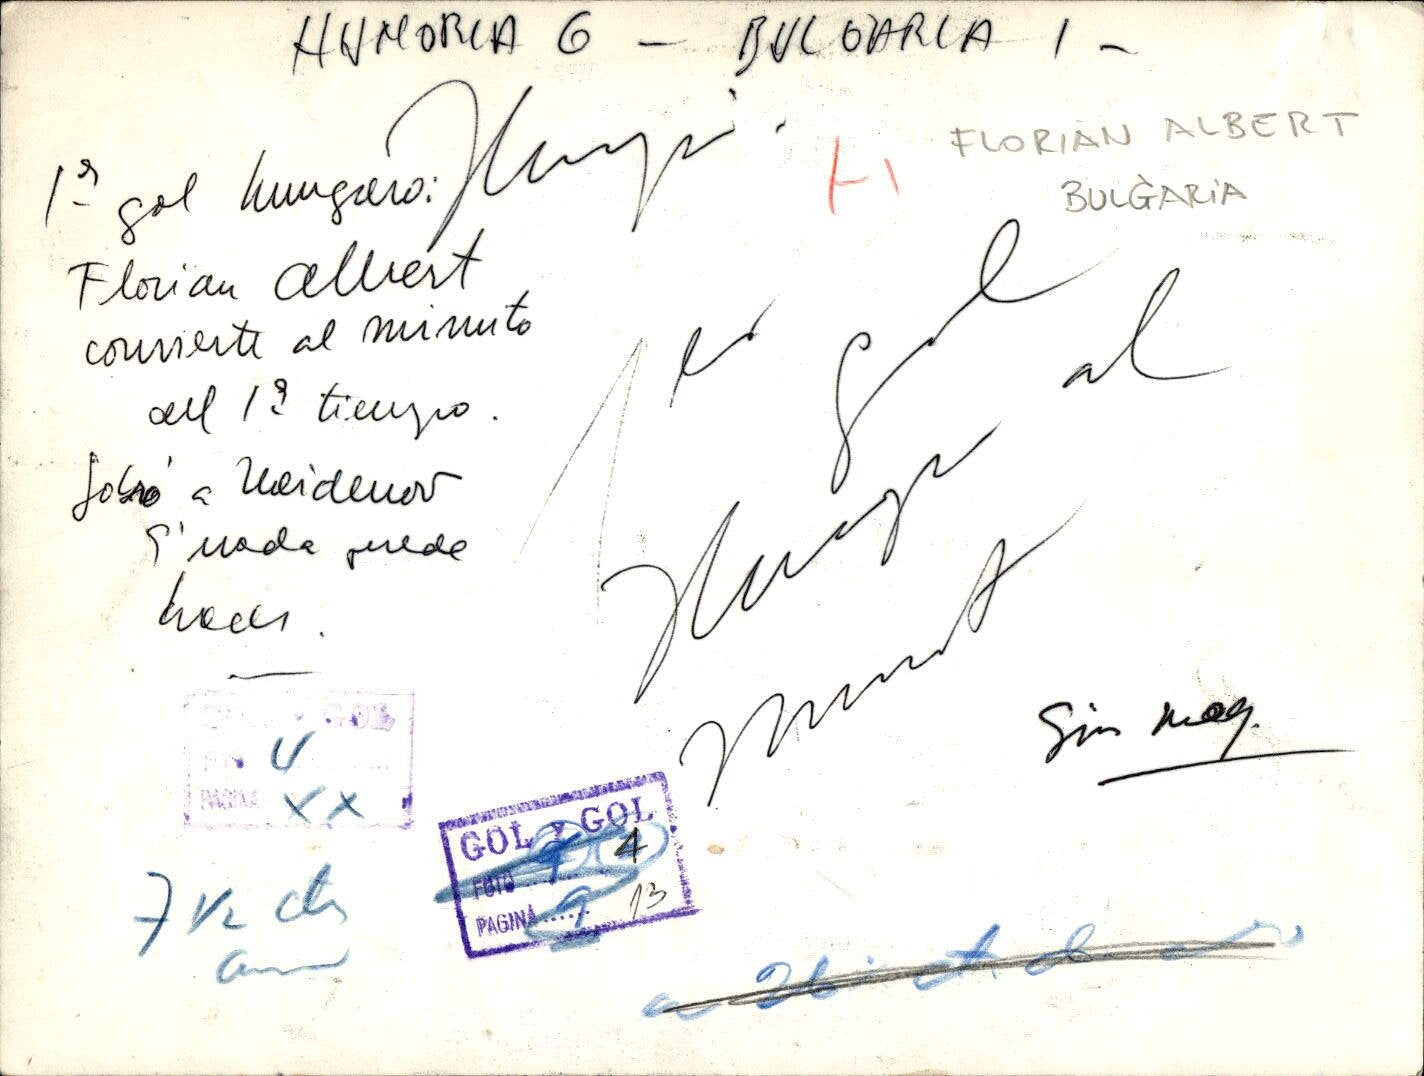 HUNGRIA 6 - BULGARIA 1 -
Hungri.
FLORIAN ALBERT
BULGARIA
1er gol hungaro:
Florian Albert
convierte al minuto
del 1er tiempo.
a Naidenov
nada puede
hacer.
1er gol
Hung al
minuto
Sin Mag.
GOL Y GOL
FOTO 4
PAGINA XX
GOL Y GOL
FOTO 4
PAGINA 9 13
7 1/2 cts